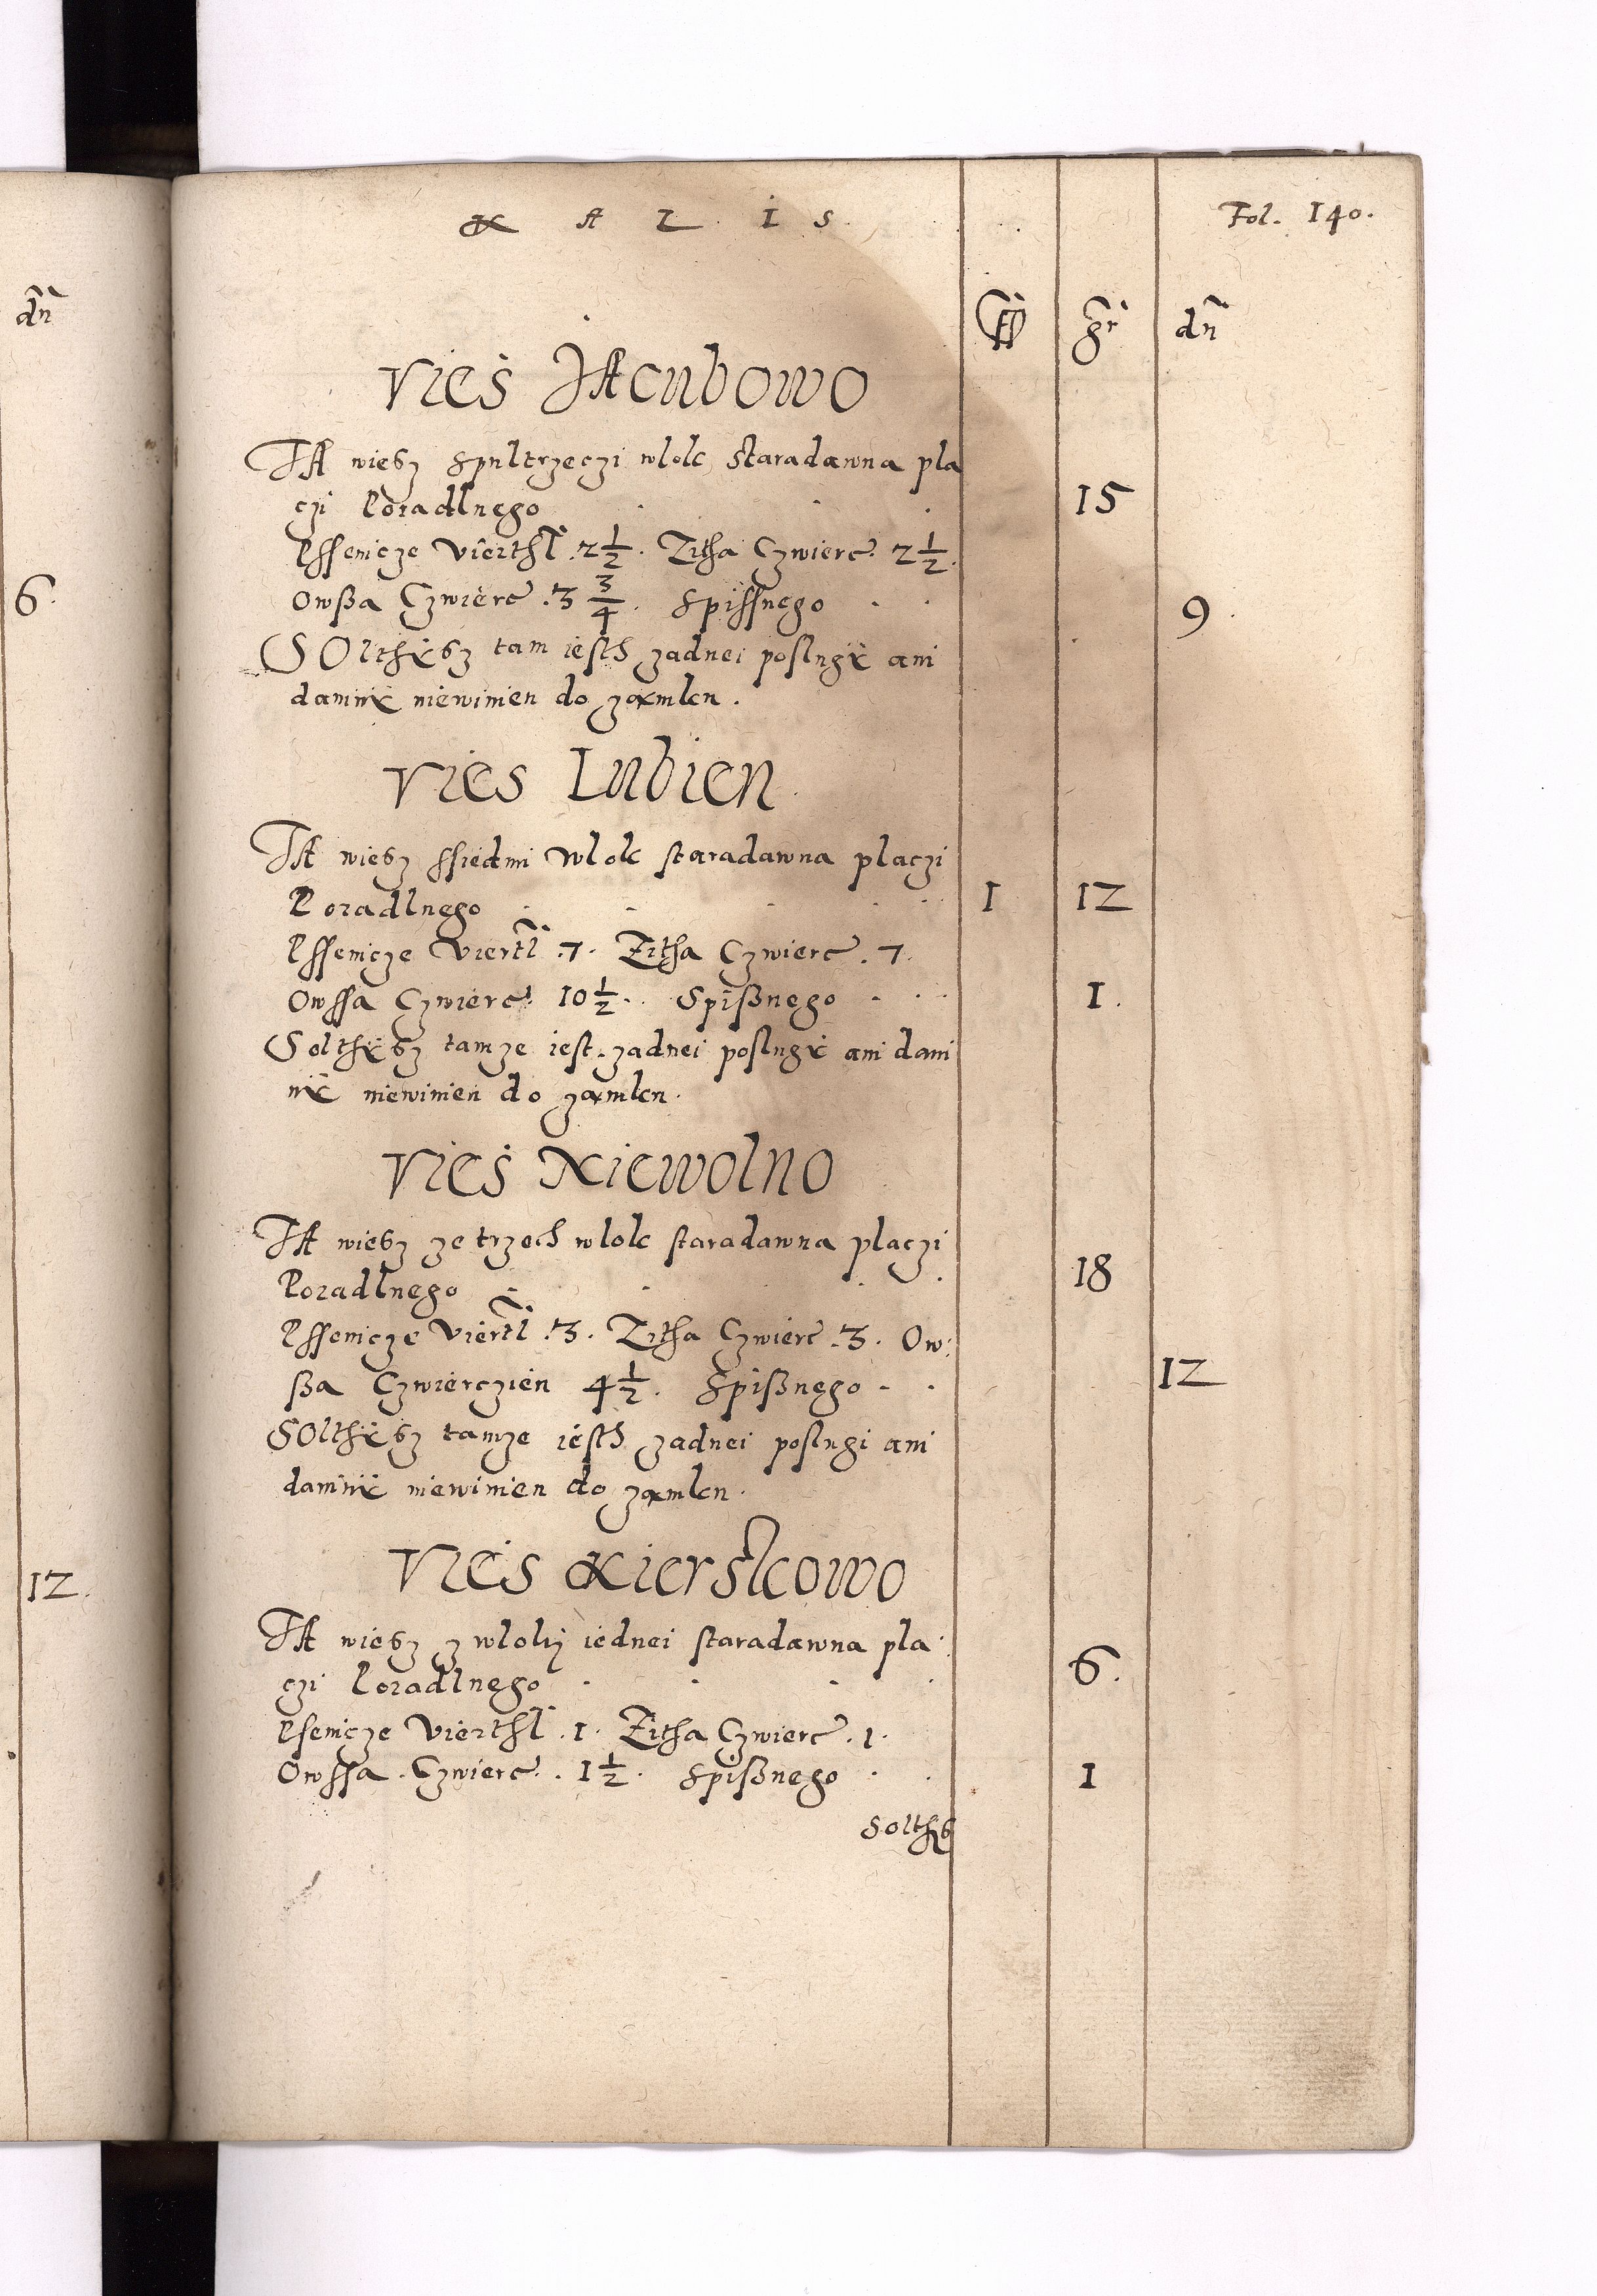 dn̄
6.
12.
K A L I S
Fol. 140.
fl gr dn̄
Vies Jacubowo
TA wiesz spultrzeczi wlok staradawna pla
czi Poradlnego 15
Pssenicze Vierthl. 2½. Zitha Czwierc. 2½.
Owßa Czwierc. 3¾. Spissnego 9.
SOlthysz tam iesth zadnei poslugy ani
daninÿ niewinien do zamku.
Vies Lubien
TA wiesz ssiedmi wlok staradawna placzi
Poradlnego 1 12
Pssenicze Viertl. 7. Zitha Czwierc. 7.
Owssa Czwierc. 10½. Spißnego 1.
Solthysz tamze iest zadnei poslugÿ ani dani
nÿ niewinien do zamku.
Vies Niewolno
TA wiesz ze trzech wlok staradawna placzi
Poradlnego 18
Pssenicze Viertl. 3. Zitha Czwierc. 3. Ow:
ßa Czwierczien 4½. Spißnego 12
SOlthÿsz tamze iesth zadnei poslugi ani
daninÿ niewinien do zamku.
Vies Kierskowo
TA wiesz z wloky iednei staradawna pla:
czi Poradlnego 6.
Psenicze Vierthl. 1. Zitha Czwierc. 1.
Owssa. Czwierc. 1½. Spißnego 1
Solthys